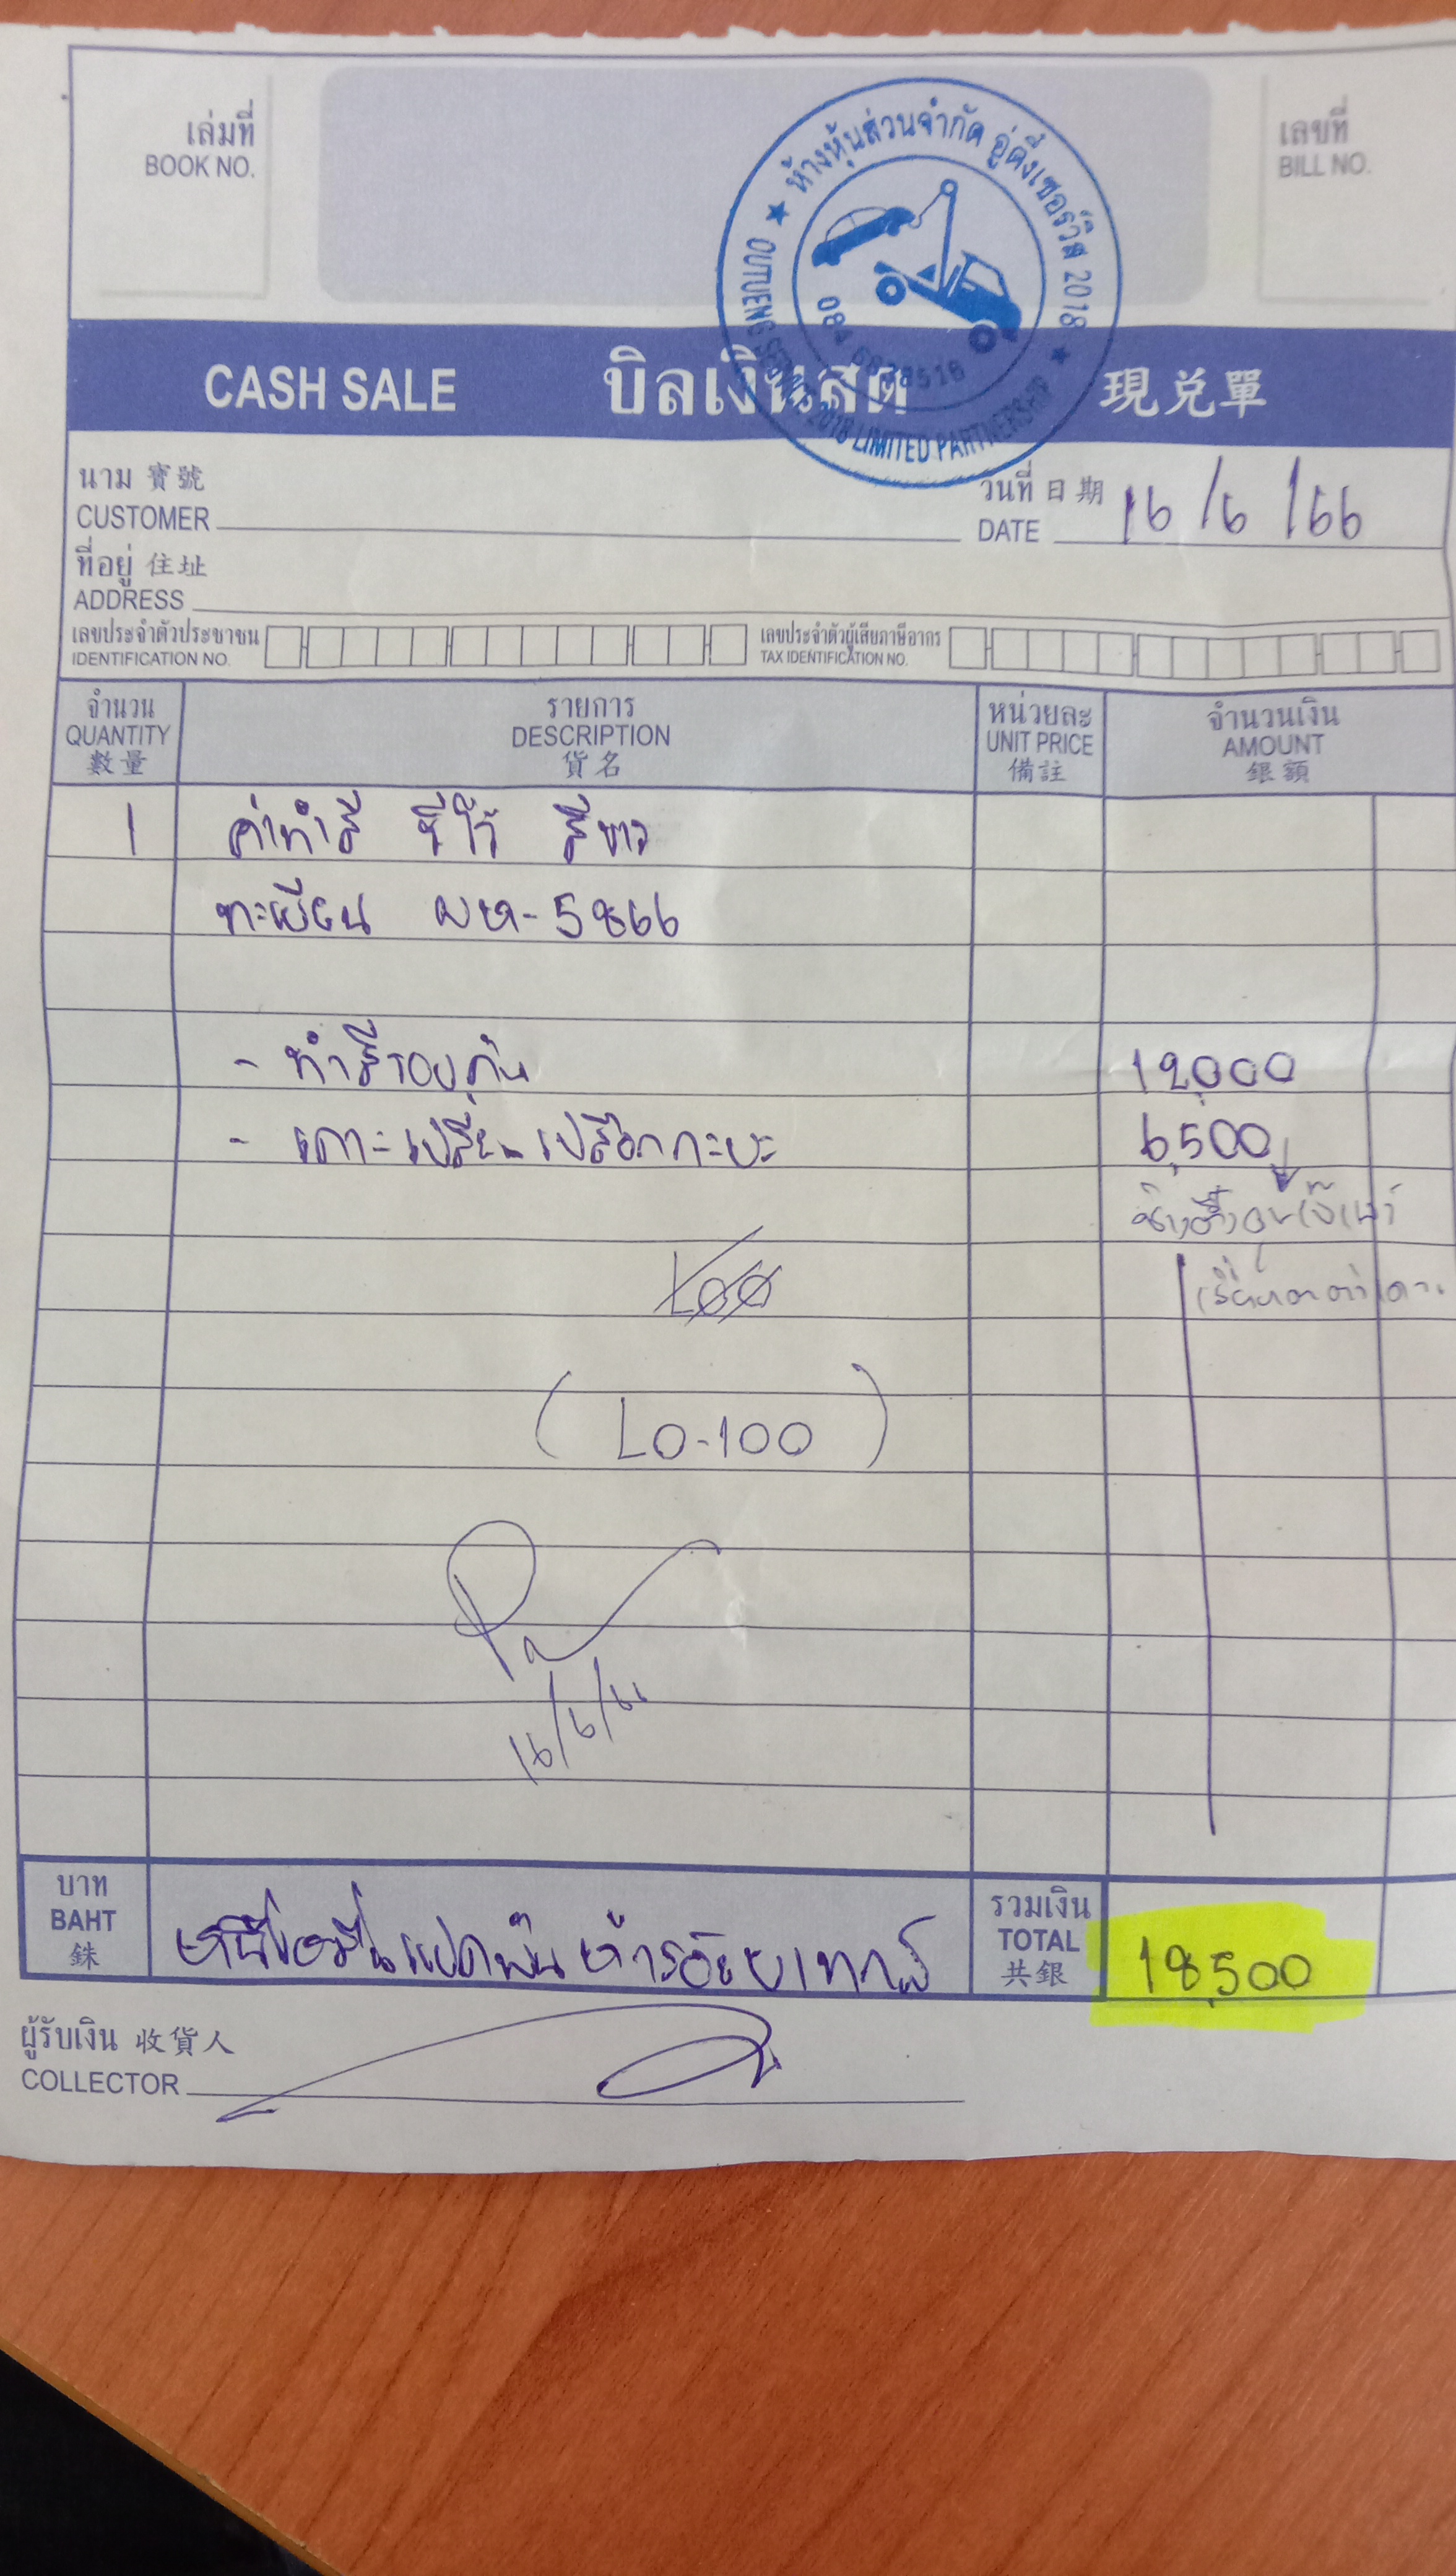 เล่มที่
BOOK NO.
เลขที่
BILL NO.
★ ห้างหุ้นส่วนจำกัด อู่ตึ๋งเซอร์วิส 2018 ★
OUTUENG SERVICE 2018 LIMITED PARTNERSHIP
CASH SALE บิลเงินสด 現兑單
นาม 寶號
CUSTOMER
วันที่ 日期
DATE 16/6/66
ที่อยู่ 住址
ADDRESS
เลขประจำตัวประชาชน
IDENTIFICATION NO.
เลขประจำตัวผู้เสียภาษีอากร
TAX IDENTIFICATION NO.
จำนวน รายการ หน่วยละ จำนวนเงิน
QUANTITY DESCRIPTION UNIT PRICE AMOUNT
數量 貨名 備註 銀額
1 ค่าทำสี วีโก้ สีขาว
ทะเบียน ผห-5866
- ทำสีรอบคัน 12,000
- เคาะเปลี่ยนเปลือกกะบะ 6,500
(LO-100)
16/6/66
บาท
BAHT
銖
หนึ่งหมื่นแปดพันห้าร้อยบาทถ้วน
รวมเงิน
TOTAL
共銀
18,500
ผู้รับเงิน 收貨人
COLLECTOR